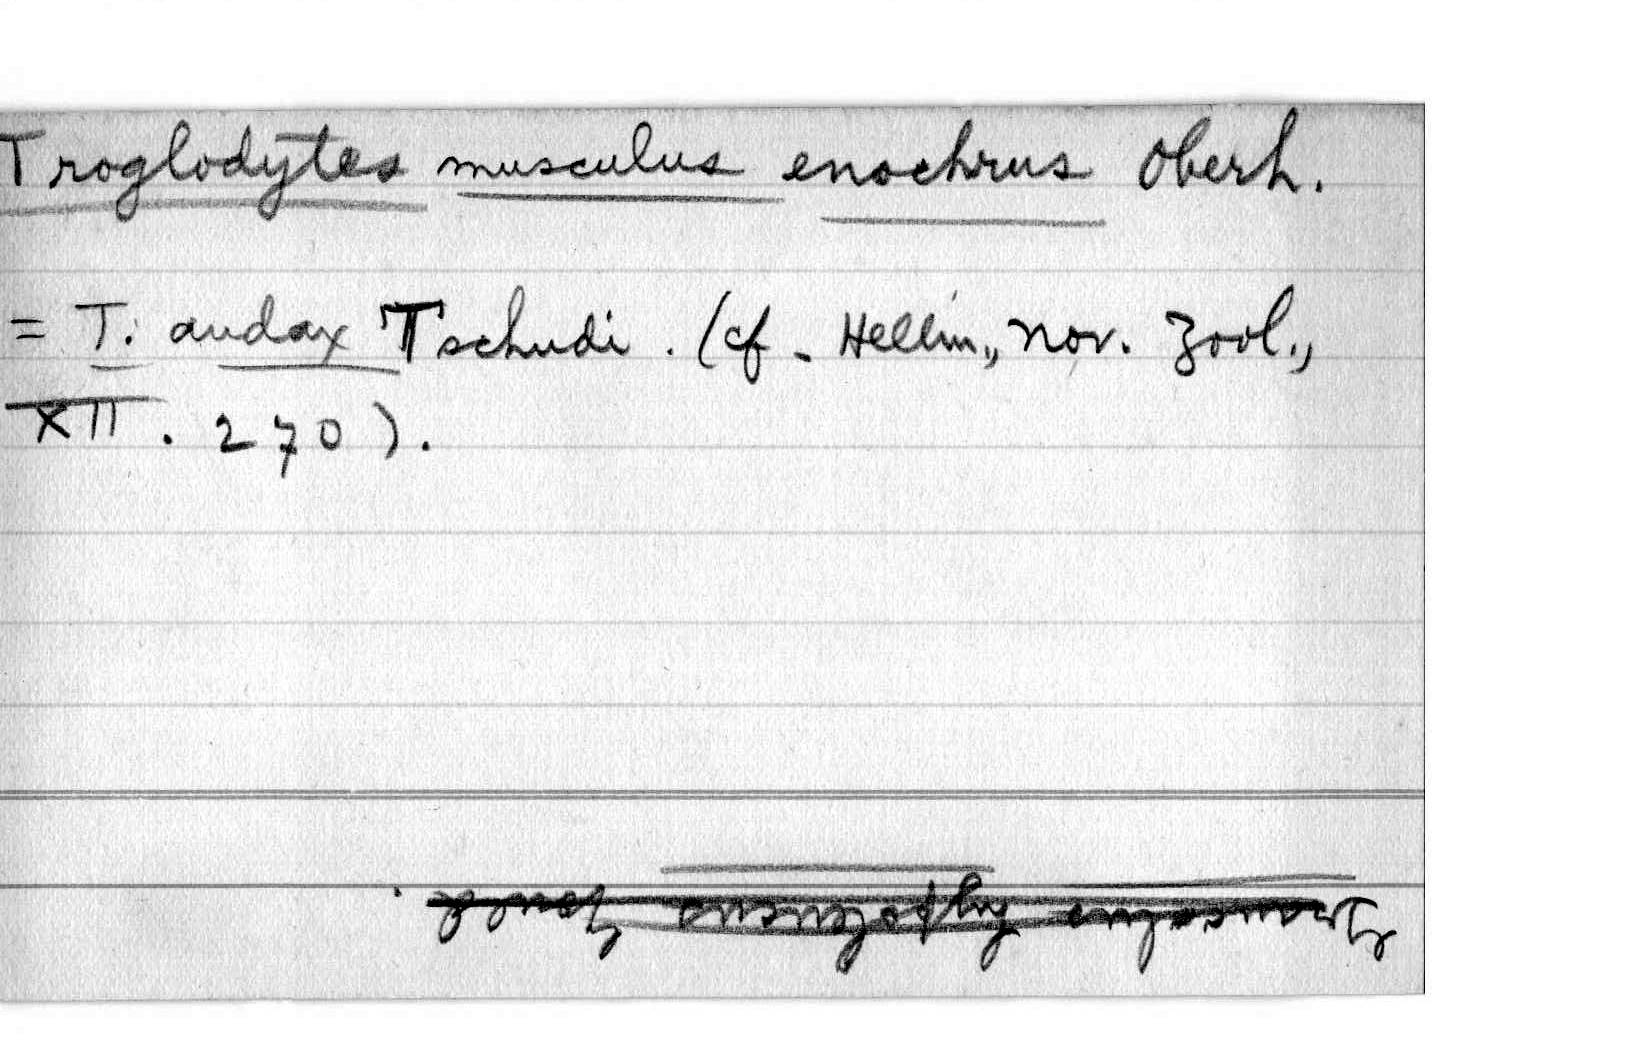 Troglodytes musculus enochrus Oberh.
= T. audax Tschudi. (cf. Hellm., Nov. Zool.,
XII. 270).
Gould.